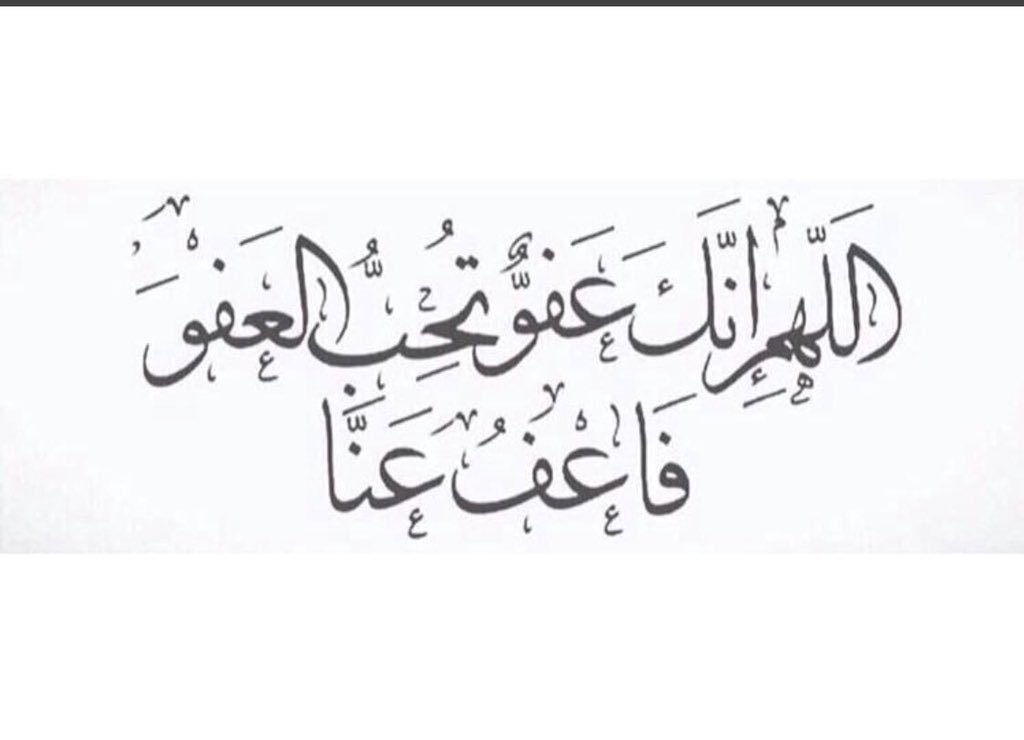 اللَّهُمَّ إِنَّكَ عَفُوٌّ تُحِبُّ العَفْوَ
فَاعْفُ عَنَّا